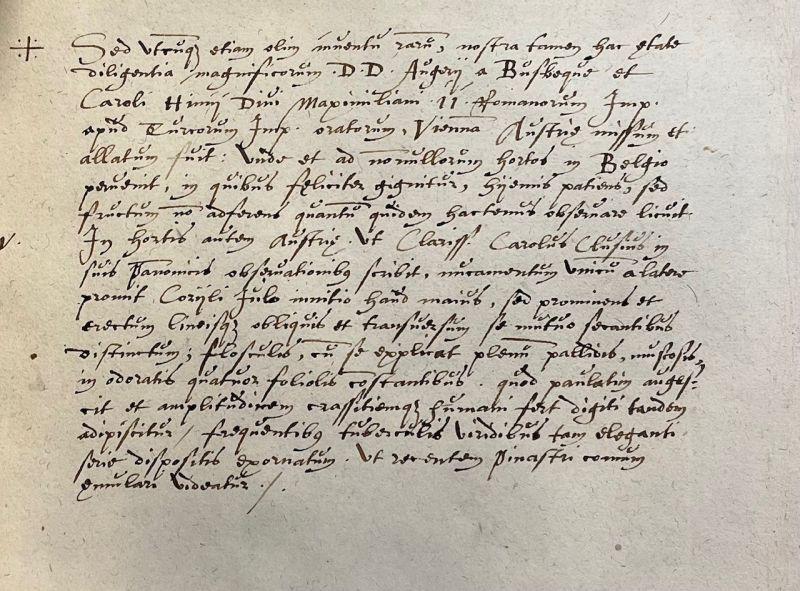 Sed vtcūq₃ etiam olim inuentu rarū, nostra tamen hac ętate
diligentia magnificorum .D.D. Augerij a Busbeque et
Caroli Himij Diui Maximiliani .II. Romanorum Imp.
apud Turcorum Imp. oratorum, Viennā Austrię missum et
allatum fuit: vnde et ad nonnullorum hortos in Belgio
peruenit, in quibus feliciter gignitur, hyemis patiens, sed
fructum nō adferens quantū quidem hactenus obseruare licuit.
v. In hortis autem Austrię. vt Clariss. Carolus Clusius in
suis Panonicis obseruationibq₃ scribit, nucamentum vnicū a latere
promit Coryli Iulo innitio haud maius, sed prominens et
erectum lineisq₃ obliquis et transuersum se mutuo secantibus
distinctum; flosculis, cū se explicat plenū pallidis, muscosis,
in odoratis quatuor foliolis constantibus. quod paulatim auges-
cit et amplitudinem crassitiemq₃ humani ferè digiti tandem
adipiscitur, frequentibq₃ tuberculis viridibus tam eleganti
serie dispositis exornatum. vt recentem Pinastri conum
ęmulari videatur ./.